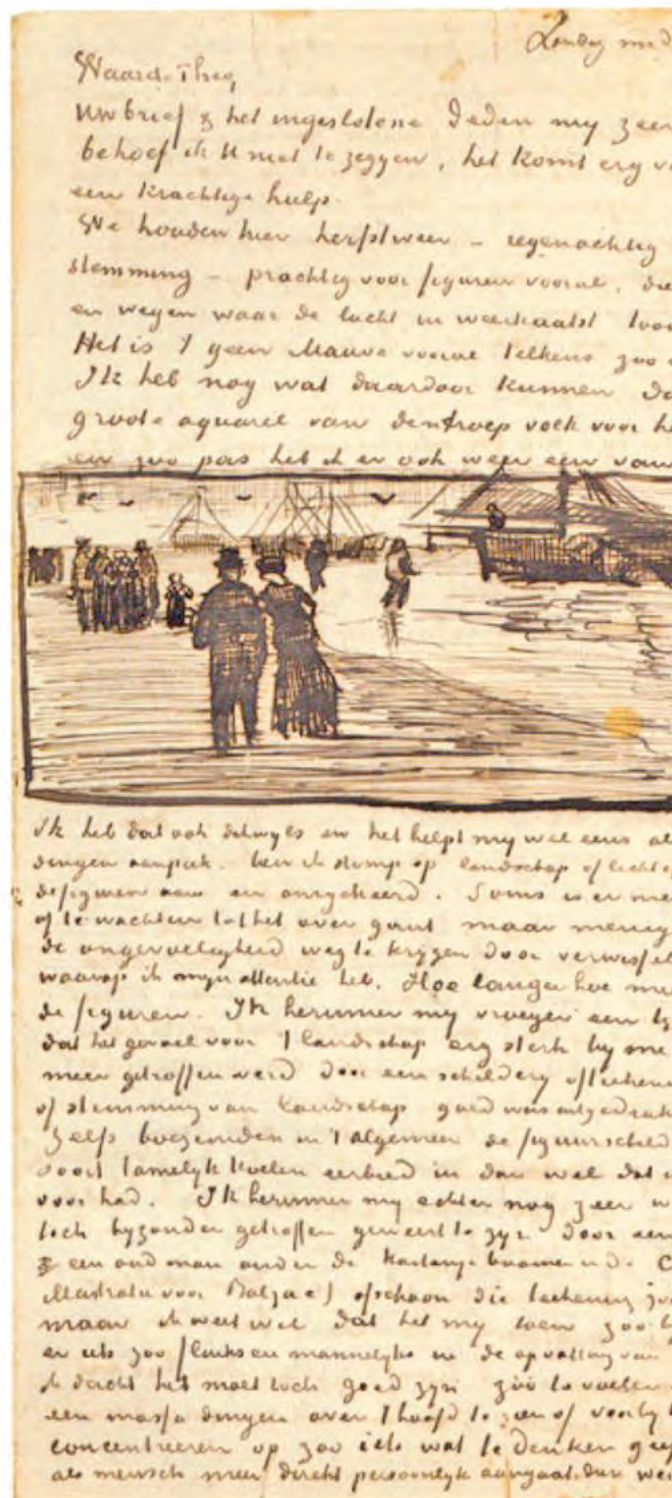 Zondag midd
Waarde Theo,
Uw brief & het ingeslotene deden my zeer
behoef ik U niet te zeggen, het komt erg v
een krachtige hulp.
We houden hier herfstweer – regenachtig
stemming – prachtig voor figuren vooral, die
en wegen waar de lucht in weerkaatst
Het is 't geen Mauve vooral telkens zoo
Ik heb nog wat daardoor kunnen do
groote aquarel van den troep volk voor h
en zoo pas heb ik er ook weer een van
Ik heb dat ook dikwyls en het helpt my wel eens al
dingen aanpak. Ben ik stomp op landschap of licht
de figuren aan en omgekeerd. Soms is er
of te wachten tot het over gaat maar menig
de ongevoeligheid weg te krygen door verwissel
waarop ik myn attentie heb. Hoe langer hoe me
de figuren. Ik herinner my vroeger een ty
dat het gevoel voor 't landschap erg sterk by me
meer getroffen werd door een schildery of teekenin
of stemming van landschap goed was uitgedrukt
Zelfs boezemden in 't algemeen de figuurschild
soort tamelyk koelen eerbied in dan wel dat
voor had. Ik herinner my echter nog zeer
toch byzonder getroffen geweest te zyn door een
een oud man onder de kastanje boomen
illustratie voor Balzac) ofschoon die teekening
maar ik weet wel dat het my toen zoo
er iets zoo flinks en mannelyks in de opvatting van
ik dacht het moet toch goed zyn zóó te voelen
een massa dingen over 't hoofd te zien of voorby
concentreeren op zoo iets wat te denken geef
als mensch meer direkt persoonlyk aangaat dan wei